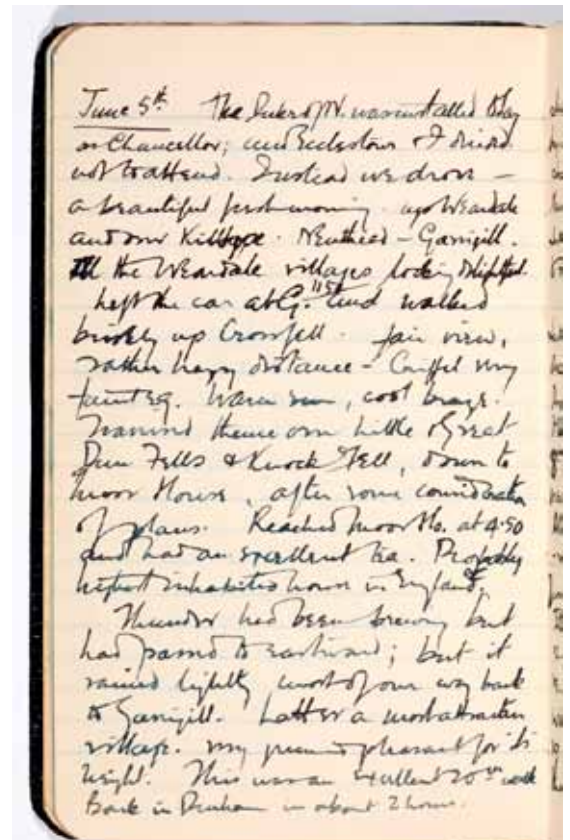 June 5th The Duke of N. was installed today
as Chancellor; and Eccleston & I
not to attend. Instead we drove –
a beautiful fresh morning – up Weardale
and over Killhope – Nenthead – Garrigill.
All the Weardale villages looking delightful.
Left the car at G. 1150 and walked
briskly up Crossfell. Fair view,
rather hazy distance – Criffel very
faint eg. Warm sun, cool breeze.
thence over Little & Great
Dun Fells & Knock Fell, down to
Moor House, after some consideration
of plans. Reached Moor Ho. at 4.50
and had an excellent tea. Probably
highest inhabited house in England.
Thunder had been brewing but
had passed to eastward; but it
rained lightly most of our way back
to Garrigill. Latter a most attractive
village. Very green & pleasant for its
height. This was an excellent 20m walk
Back in Durham in about 2 hours.